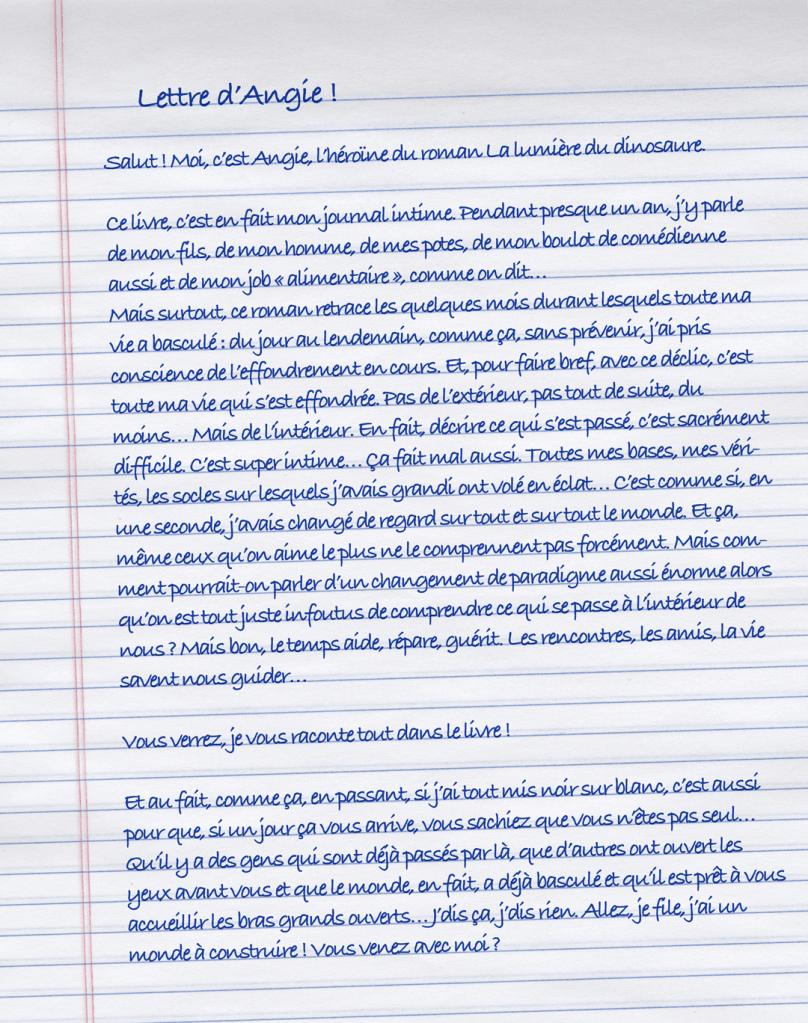 Lettre d'Angie !
Salut ! Moi, c'est Angie, l'héroïne du roman La lumière du dinosaure.
Ce livre, c'est en fait mon journal intime. Pendant presque un an, j'y parle
de mon fils, de mon homme, de mes potes, de mon boulot de comédienne
aussi et de mon job « alimentaire », comme on dit...
Mais surtout, ce roman retrace les quelques mois durant lesquels toute ma
vie a basculé : du jour au lendemain, comme ça, sans prévenir, j'ai pris
conscience de l'effondrement en cours. Et, pour faire bref, avec ce déclic, c'est
toute ma vie qui s'est effondrée. Pas de l'extérieur, pas tout de suite, du
moins... Mais de l'intérieur. En fait, décrire ce qui s'est passé, c'est sacrément
difficile. C'est super intime... Ça fait mal aussi. Toutes mes bases, mes véri-
tés, les socles sur lesquels j'avais grandi ont volé en éclat... C'est comme si, en
une seconde, j'avais changé de regard sur tout et sur tout le monde. Et ça,
même ceux qu'on aime le plus ne le comprennent pas forcément. Mais com-
ment pourrait-on parler d'un changement de paradigme aussi énorme alors
qu'on est tout juste infoutus de comprendre ce qui se passe à l'intérieur de
nous ? Mais bon, le temps aide, répare, guérit. Les rencontres, les amis, la vie
savent nous guider...
Vous verrez, je vous raconte tout dans le livre !
Et au fait, comme ça, en passant, si j'ai tout mis noir sur blanc, c'est aussi
pour que, si un jour ça vous arrive, vous sachiez que vous n'êtes pas seul...
Qu'il y a des gens qui sont déjà passés par là, que d'autres ont ouvert les
yeux avant vous et que le monde, en fait, a déjà basculé et qu'il est prêt à vous
accueillir les bras grands ouverts... J'dis ça, j'dis rien. Allez, je file, j'ai un
monde à construire ! Vous venez avec moi ?